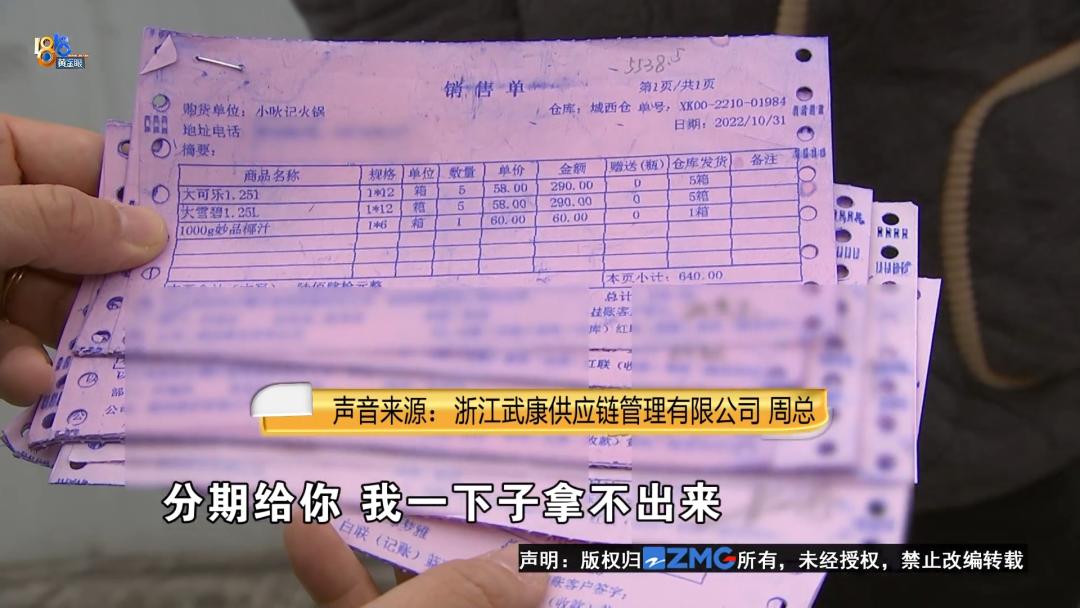 1818
黄金眼
5538.5
销售单
第1页/共1页
购货单位：小吙记火锅
仓库：城西仓 单号：XK00-2210-01984
地址电话
日期：2022/10/31
摘要：
商品名称 规格 单位 数量 单价 金额 赠送(瓶) 仓库发货 备注
大可乐1.25l 1*12 箱 5 58.00 290.00 0 5箱
大雪碧1.25L 1*12 箱 5 58.00 290.00 0 5箱
1000g妙品椰汁 1*6 箱 1 60.00 60.00 0 1箱
本页小计：640.00
陆佰肆拾元整
总计
挂账客
库）红
红联（收
声音来源：浙江武康供应链管理有限公司 周总
分期给你 我一下子拿不出来
白联（记账）蓝
声明：版权归ZMG所有，未经授权，禁止改编转载
账客户签字：
（收款）